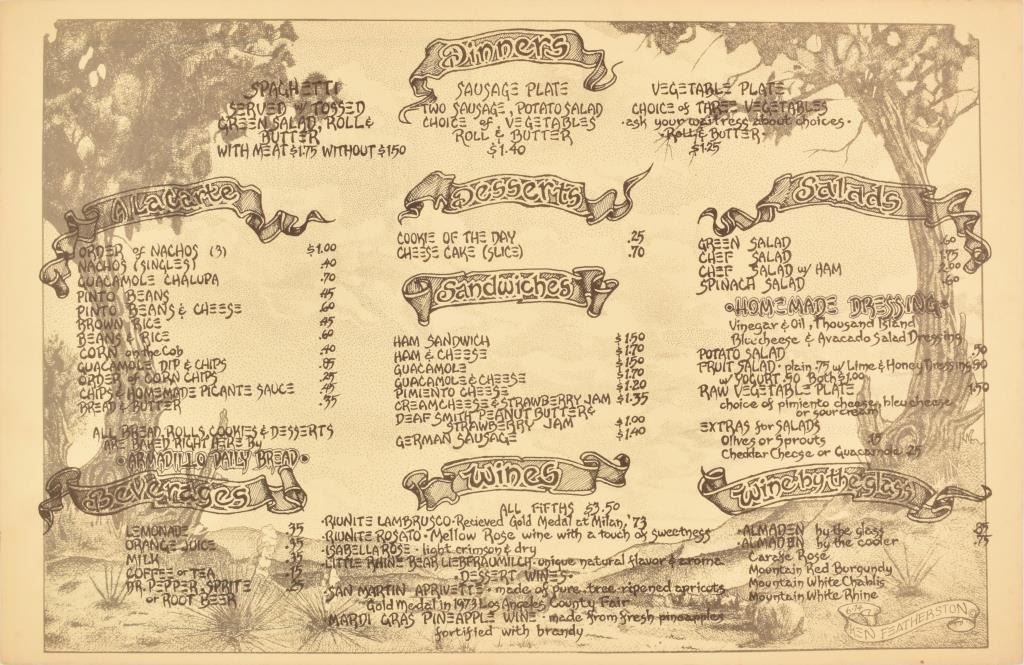 Dinners
SPAGHETTI
SERVED W/ TOSSED
GREEN SALAD, ROLL &
BUTTER
WITH MEAT $1.75 WITHOUT $1.50
SAUSAGE PLATE
TWO SAUSAGE, POTATO SALAD
CHOICE OF VEGETABLES
ROLL & BUTTER
$1.40
VEGETABLE PLATE
CHOICE of THREE VEGETABLES
·ask your waitress about choices·
·ROLL & BUTTER·
$1.25
A La Carte
ORDER of NACHOS (3) $1.00
NACHOS (SINGLES) .40
GUACAMOLE CHALUPA .70
PINTO BEANS .45
PINTO BEANS & CHEESE .60
BROWN RICE .45
BEANS & RICE .60
CORN on the Cob .40
GUACAMOLE DIP & CHIPS .85
ORDER of CORN CHIPS .25
CHIPS & HOMEMADE PICANTE SAUCE .45
BREAD & BUTTER .35
ALL BREAD, ROLLS, COOKIES & DESSERTS
ARE BAKED RIGHT HERE By
·ARMADILLO DAILY BREAD·
Desserts
COOKIE OF THE DAY .25
CHEESE CAKE (SLICE) .70
Sandwiches
HAM SANDWICH $1.50
HAM & CHEESE $1.70
GUACAMOLE $1.50
GUACAMOLE & CHEESE $1.70
PIMIENTO CHEESE $1.20
CREAMCHEESE & STRAWBERRY JAM $1.35
DEAF SMITH PEANUT BUTTER &
STRAWBERRY JAM $1.00
GERMAN SAUSAGE $1.40
Salads
GREEN SALAD .60
CHEF SALAD 1.75
CHEF SALAD w/ HAM 2.00
SPINACH SALAD .60
·HOMEMADE DRESSING·
Vinegar & Oil, Thousand Island
Bleucheese & Avacado Salad Dressing
POTATO SALAD .50
FRUIT SALAD · plain .75 w/ Lime & Honey Dressing .90
w/ YOGURT .90 Both $1.00
RAW VEGETABLE PLATE 1.50
choice of pimiento cheese, bleu cheese
or sour cream
EXTRAS for SALADS
Olives or Sprouts .15
Cheddar Cheese or Guacamole .25
Beverages
LEMONADE .35
ORANGE JUICE .35
MILK .35
COFFEE or TEA .15
DR. PEPPER, SPRITE .25
or ROOT BEER
Wines
ALL FIFTHS $3.50
·RIUNITE LAMBRUSCO· Recieved Gold Medal at Milan, '73
·RIUNITE ROSATO· Mellow Rose wine with a touch of sweetness
·ISABELLA ROSE· light crimson & dry
·LITTLE RHINE BEAR LIEBFRAUMILCH· unique natural flavor & aroma
·DESSERT WINES·
·SAN MARTIN APRIVETTE· made of pure tree-ripened apricots
Gold Medal in 1973 Los Angeles County Fair
·MARDI GRAS PINEAPPLE WINE· made from fresh pineapples
fortified with brandy
Wine by the glass
·ALMADEN by the glass .85
·ALMADEN by the cooler .75
Garafe Rosé
Mountain Red Burgundy
Mountain White Chablis
Mountain White Rhine
KEN FEATHERSTON